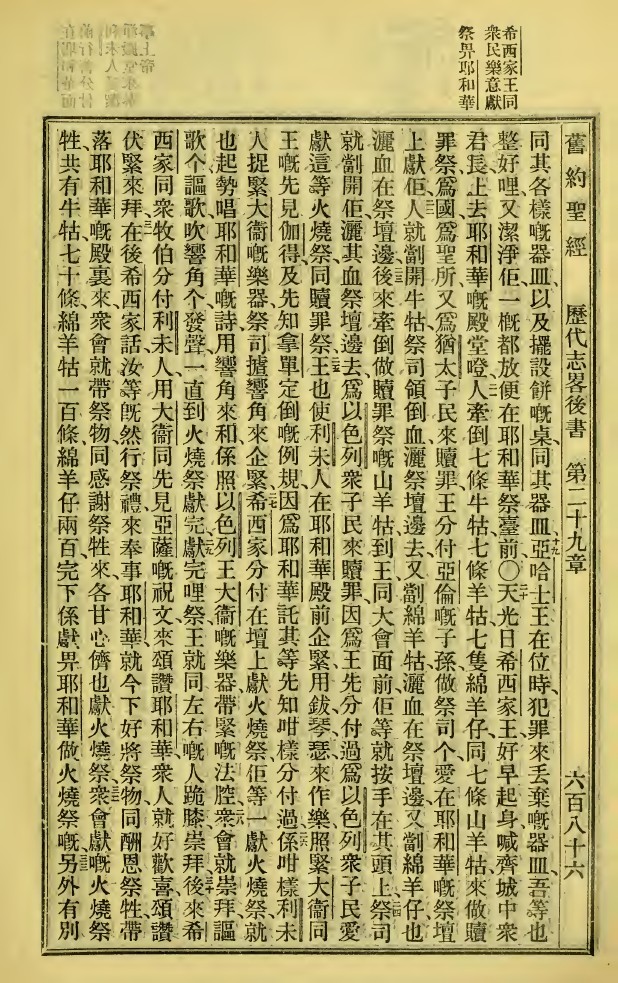 希西家王同
衆民樂意獻
祭畀耶和華
舊約聖經 歷代志畧後書 第二十九章 六百八十六
同其各樣嘅器皿、以及擺設餅嘅桌、同其器皿、十九亞哈士王在位時、犯罪來丢棄嘅器皿、吾等也
整好哩、又潔淨佢、一概都放便在耶和華祭臺前〇二十天光日希西家王好早起身、喊齊城中衆
君長、上去耶和華嘅殿堂、二一噔人牽倒七條牛牯、七條羊牯、七隻綿羊仔、同七條山羊牯、來做贖
罪祭、爲國、爲聖所、又爲猶太子民來贖罪、王分付亞倫嘅子孫做祭司个、愛在耶和華嘅祭壇
上獻佢、二二人就劏開牛牯、祭司領倒血、灑祭壇邊去、又劏綿羊牯、灑血在祭壇邊、又劏綿羊仔、也
灑血在祭壇邊、二三後來牽倒做贖罪祭嘅山羊牯、到王同大會面前、佢等就按手在其頭上、二四祭司
就劏開佢、灑其血祭壇邊去、爲以色列衆子民來贖罪、因爲王先分付過、爲以色列衆子民、愛
獻這等火燒祭、同贖罪祭、二五王也使利未人在耶和華殿前企緊、用鈸琴瑟來作樂、照緊大衞同
王嘅先見伽得、及先知拿單定倒嘅例規、因爲耶和華託其等先知咁樣分付過、二六係咁樣利未
人捉緊大衞嘅樂器、祭司揸響角來企緊、二七希西家分付在壇上獻火燒祭、佢等一獻火燒祭、就
也起勢唱耶和華嘅詩、用響角來和係照以色列王大衞嘅樂器帶緊嘅法腔、二八衆會就崇拜、謳
歌个謳歌、吹響角个發聲、一直到火燒祭獻完、二九獻完哩祭、王就同左右嘅人跪膝崇拜、三十後來希
西家同衆牧伯分付利未人、用大衞同先見亞薩嘅祝文、來頌讚耶和華、衆人就好歡喜頌讚、
伏緊來拜、三一在後希西家話、汝等旣然行祭禮來奉事耶和華、就今下好將祭物同酬恩祭牲、帶
落耶和華嘅殿裏來、衆會就帶祭物同感謝祭牲來、各甘心儕也獻火燒祭、三二衆會獻嘅火燒祭
牲、共有牛牯七十條、綿羊牯一百條、綿羊仔兩百、完下係獻畀耶和華做火燒祭嘅、三三另外有別